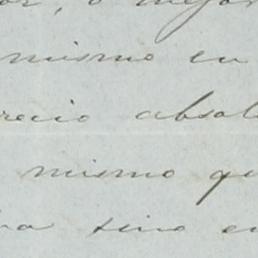 o mejor
mismo en
recio absol
mismo qu
sino en